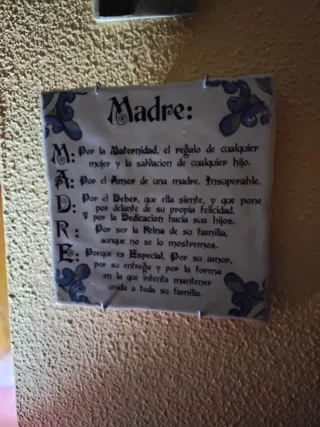 Madre:
M: Por la Maternidad, el regalo de cualquier
mujer y la salvacion de cualquier hijo.
A: Por el Amor de una madre. Insuperable.
D: Por el Deber, que ella siente, y que pone
por delante de su propia felicidad.
Y por la Dedicacion hacia sus hijos.
R: Por ser la Reina de su familia,
aunque no se lo mostremos.
E: Porque es Especial. Por su amor,
por su entrega y por la forma
en la que intenta mantener
unida a toda su familia.